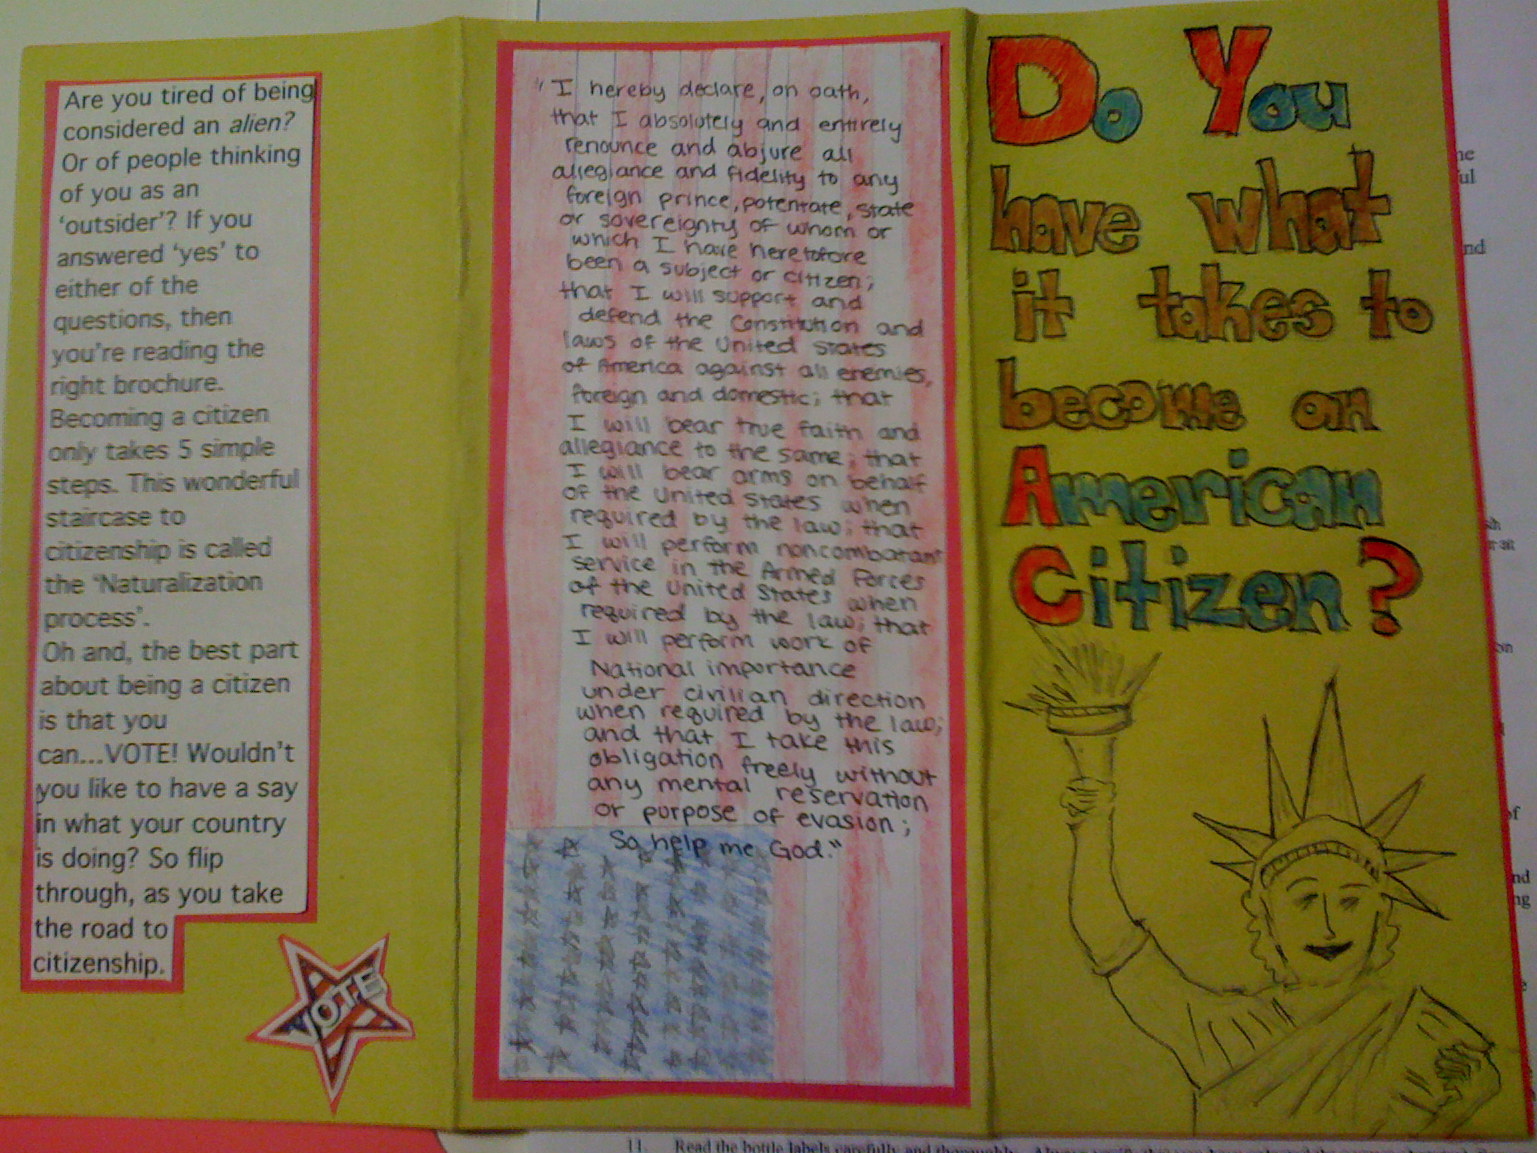 Are you tired of being
considered an alien?
Or of people thinking
of you as an
'outsider'? If you
answered 'yes' to
either of the
questions, then
you're reading the
right brochure.
Becoming a citizen
only takes 5 simple
steps. This wonderful
staircase to
citizenship is called
the 'Naturalization
process'.
Oh and, the best part
about being a citizen
is that you
can...VOTE! Wouldn't
you like to have a say
in what your country
is doing? So flip
through, as you take
the road to
citizenship.
VOTE
"I hereby declare, on oath,
that I absolutely and entirely
renounce and abjure all
allegiance and fidelity to any
foreign prince, potentate, state
or sovereignty of whom or
which I have heretofore
been a subject or citizen;
that I will support and
defend the Constitution and
laws of the United States
of America against all enemies,
foreign and domestic; that
I will bear true faith and
allegiance to the same; that
I will bear arms on behalf
of the United States when
required by the law; that
I will perform noncombatant
service in the Armed Forces
of the United States when
required by the law; that
I will perform work of
National importance
under civilian direction
when required by the law;
and that I take this
obligation freely without
any mental reservation
or purpose of evasion;
So help me God."
Do You
have what
it takes to
become an
American
Citizen?
11. Read the bottle labels carefully and thoroughly.